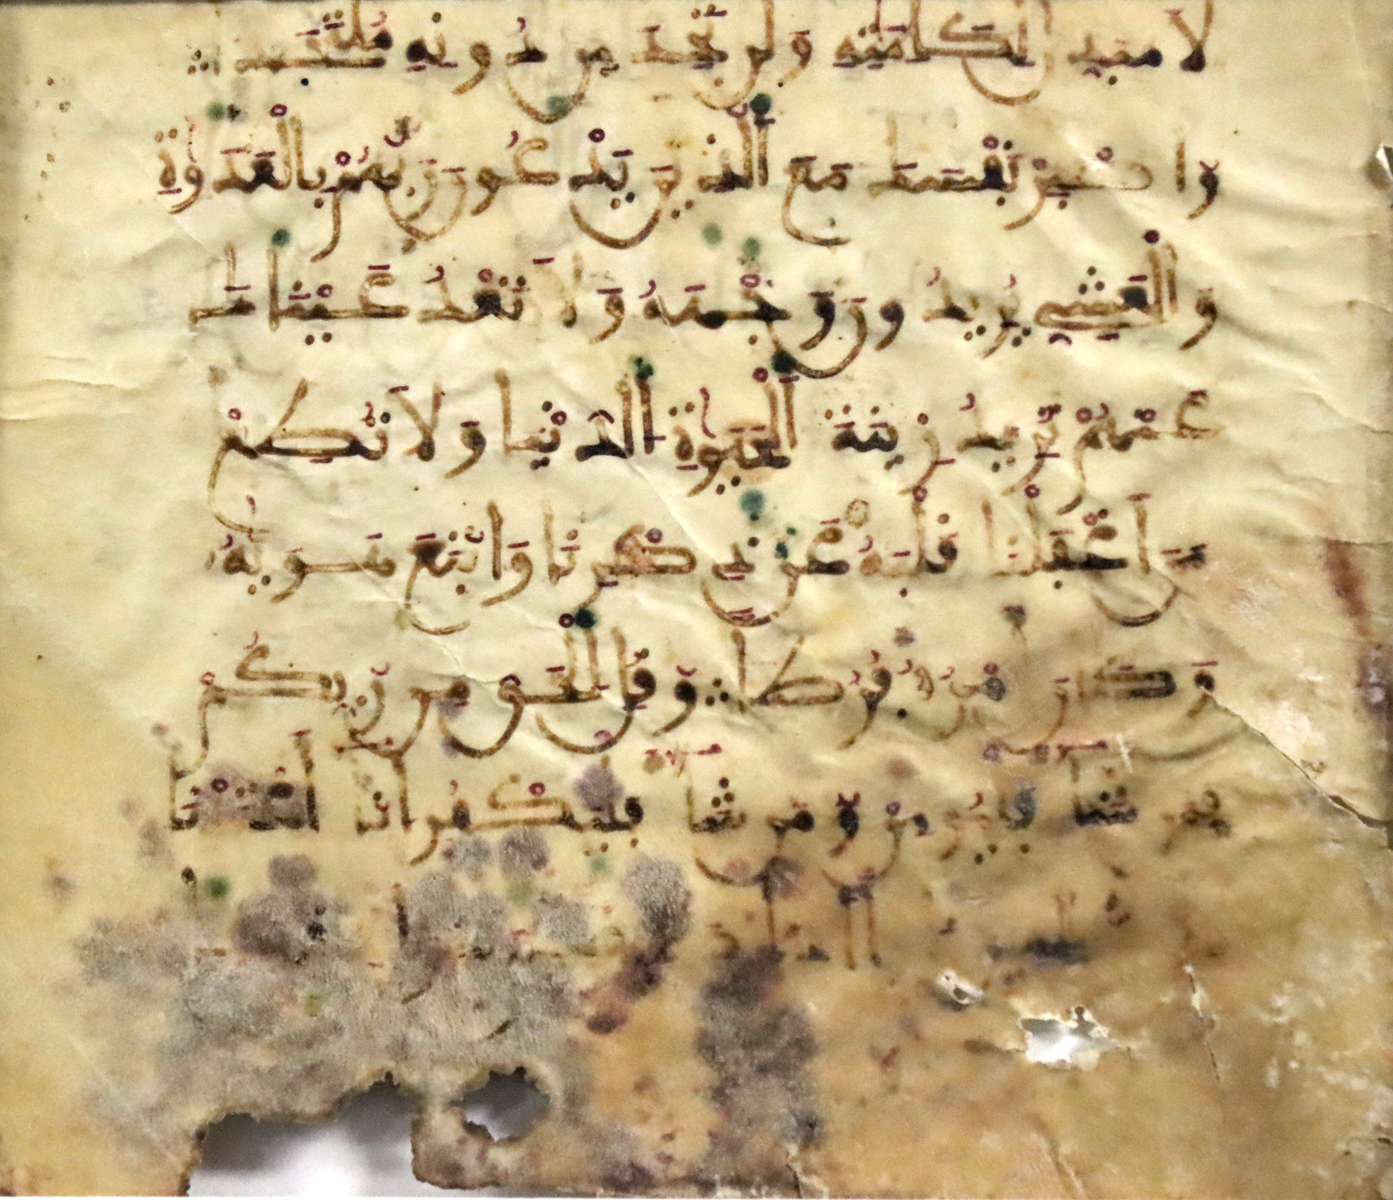 لَا مُبَدِّلَ لِكَلِمَٰتِهِ وَلَن تَجِدَ مِن دُونِهِ مُلْتَحَدًا
وَاصْبِرْ نَفْسَكَ مَعَ الَّذِينَ يَدْعُونَ رَبَّهُمْ بِالْغَدَوٰةِ
وَالْعَشِيِّ يُرِيدُونَ وَجْهَهُ وَلَا تَعْدُ عَيْنَاكَ
عَنْهُمْ تُرِيدُ زِينَةَ الْحَيَوٰةِ الدُّنْيَا وَلَا تُطِعْ
مَنْ أَغْفَلْنَا قَلْبَهُ عَن ذِكْرِنَا وَاتَّبَعَ هَوَيٰهُ
وَكَانَ أَمْرُهُ فُرُطًا وَقُلِ الْحَقُّ مِن رَّبِّكُمْ
فَمَن شَآءَ فَلْيُؤْمِن وَمَن شَآءَ فَلْيَكْفُرْ إِنَّا أَعْتَدْنَا